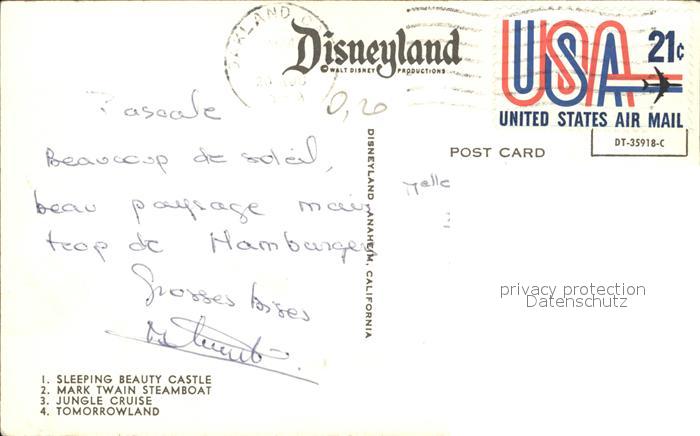 OAKLAND, C
Disneyland
© WALT DISNEY PRODUCTIONS
USA 21¢
UNITED STATES AIR MAIL
DT-35918-C
POST CARD
0,20
Pascale
Beaucoup de soleil,
beau paysage mais
trop de Hamburgers
Grosses bises
DISNEYLAND, ANAHEIM, CALIFORNIA
Melle
privacy protection
Datenschutz
1. SLEEPING BEAUTY CASTLE
2. MARK TWAIN STEAMBOAT
3. JUNGLE CRUISE
4. TOMORROWLAND